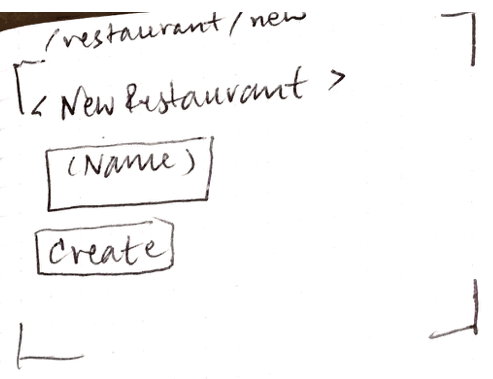 /restaurant/new
< New Restaurant >
(Name)
Create